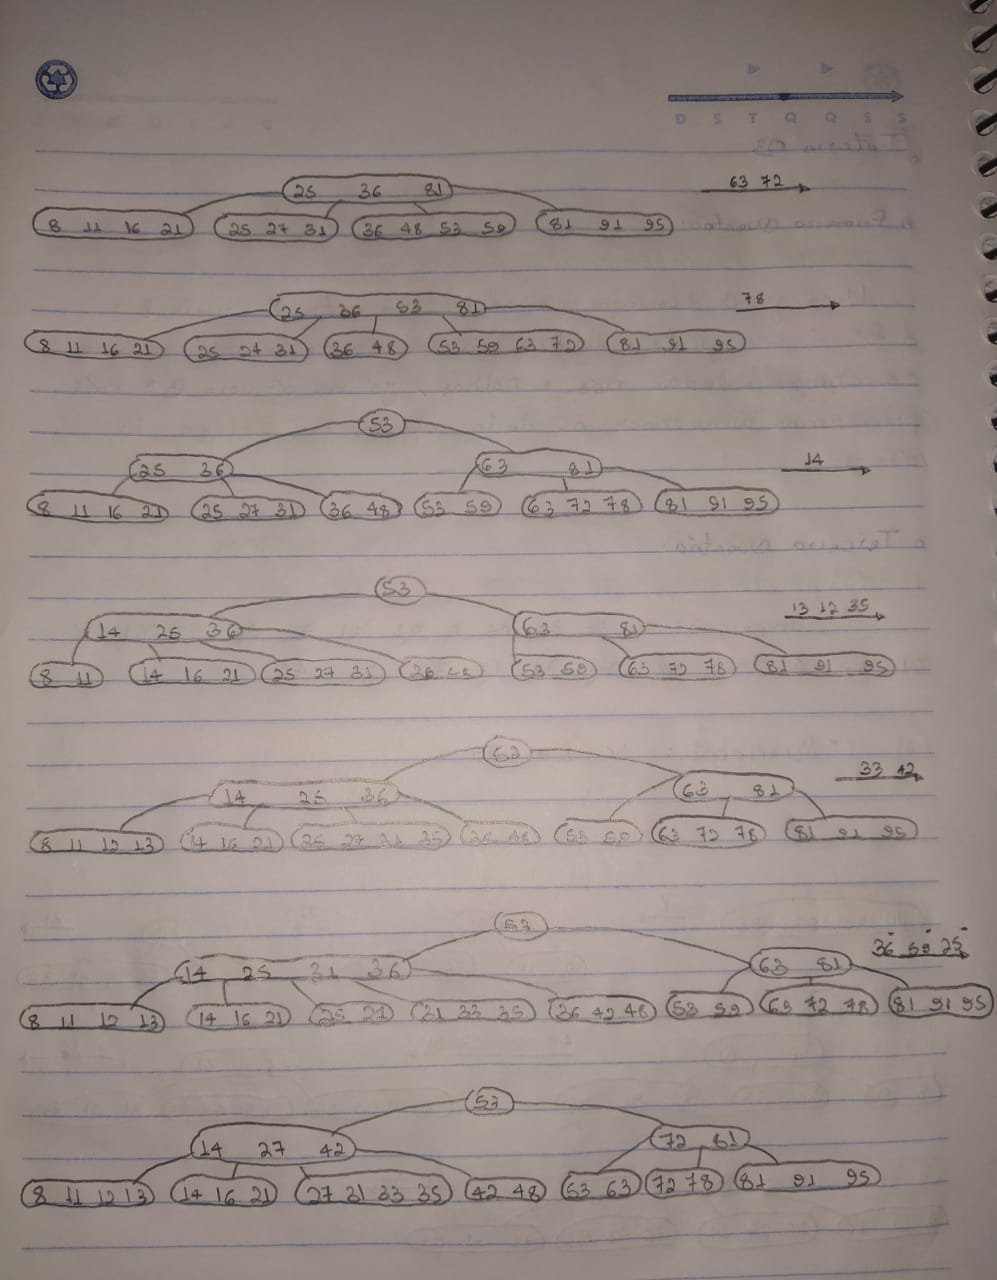 D S T Q Q S S
63 72
25 36 81
8 11 16 21 25 27 31 36 48 53 59 81 91 95
78
25 36 53 81
8 11 16 21 25 27 31 36 48 53 59 63 72 81 91 95
53
14
25 36 63 81
8 11 16 21 25 27 31 36 48 53 59 63 72 78 81 91 95
53
13 12 35
14 25 36 63 81
8 11 14 16 21 25 27 31 36 48 53 59 63 72 78 81 91 95
33 42
14 25 36 63 81
8 11 12 13 14 16 21 25 27 31 35 36 48 53 59 63 72 78 81 91 95
53
36 59 25
14 25 31 36 63 81
8 11 12 13 14 16 21 25 27 31 33 35 36 42 48 53 59 63 72 78 81 91 95
53
14 27 42 72 81
8 11 12 13 14 16 21 27 31 33 35 42 48 53 63 72 78 81 91 95